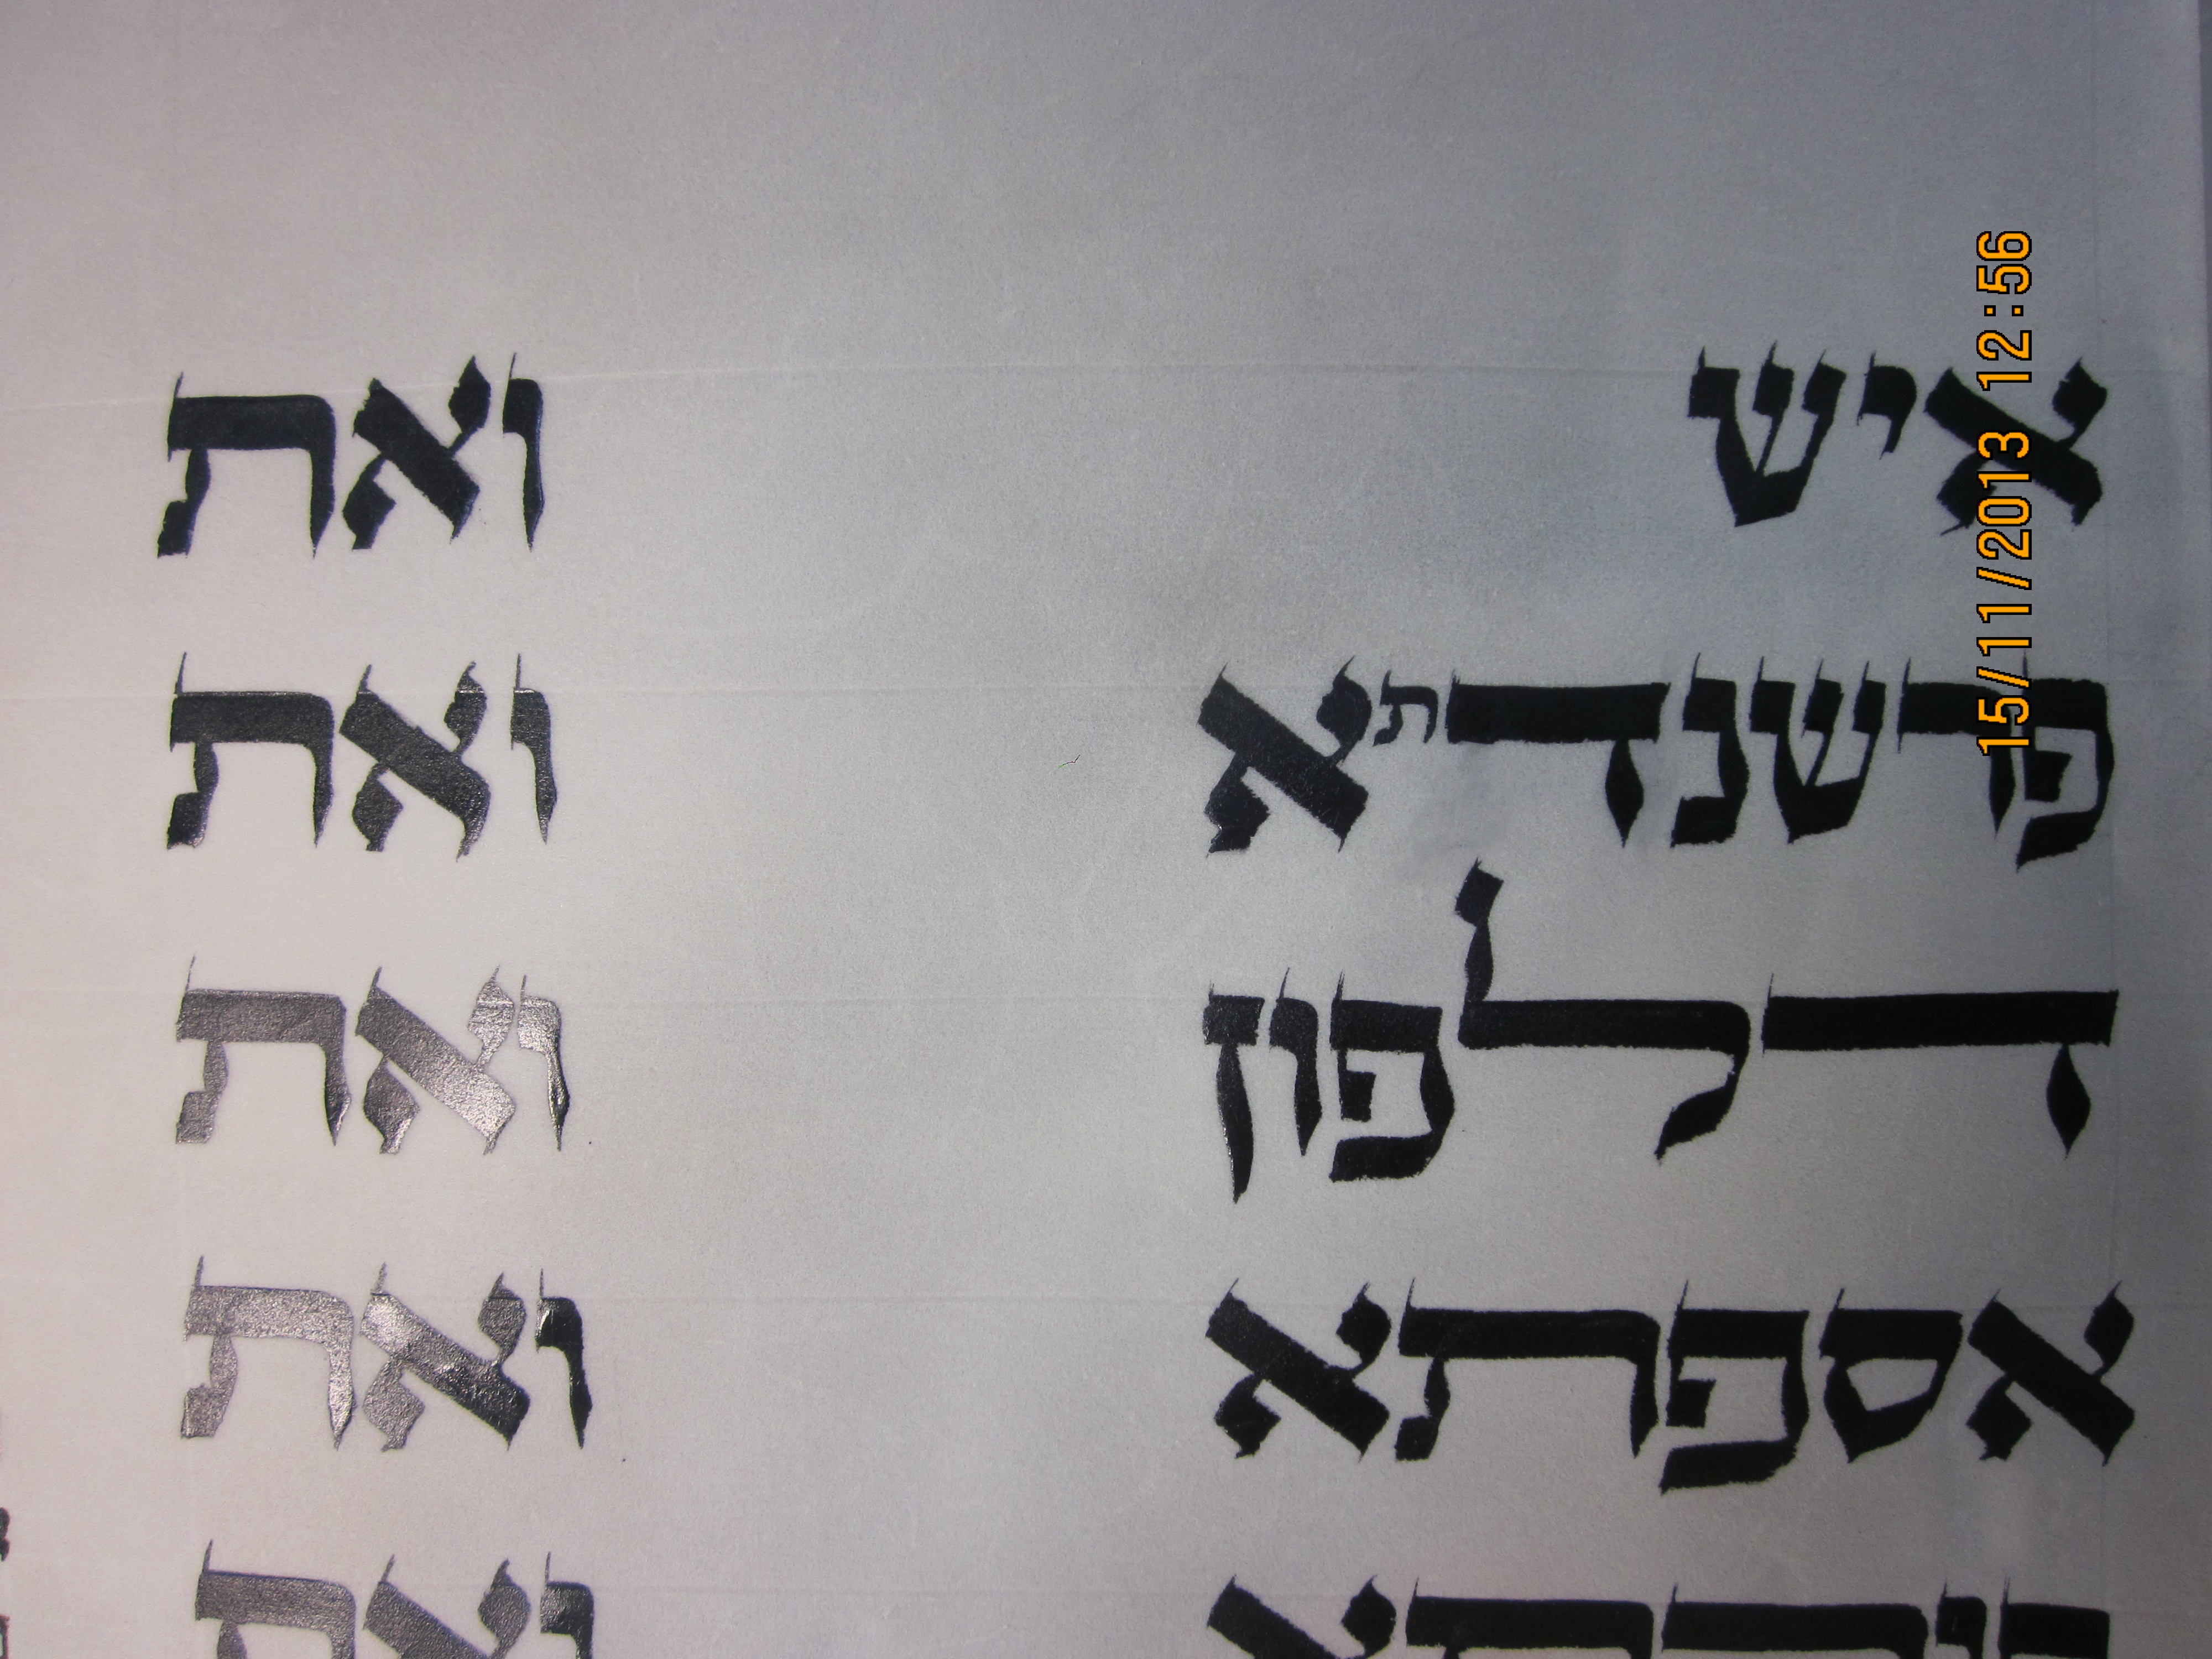 איש ואת
פרשנדתא ואת
דלפון ואת
אספתא ואת
ואת
15/11/2013 12:56